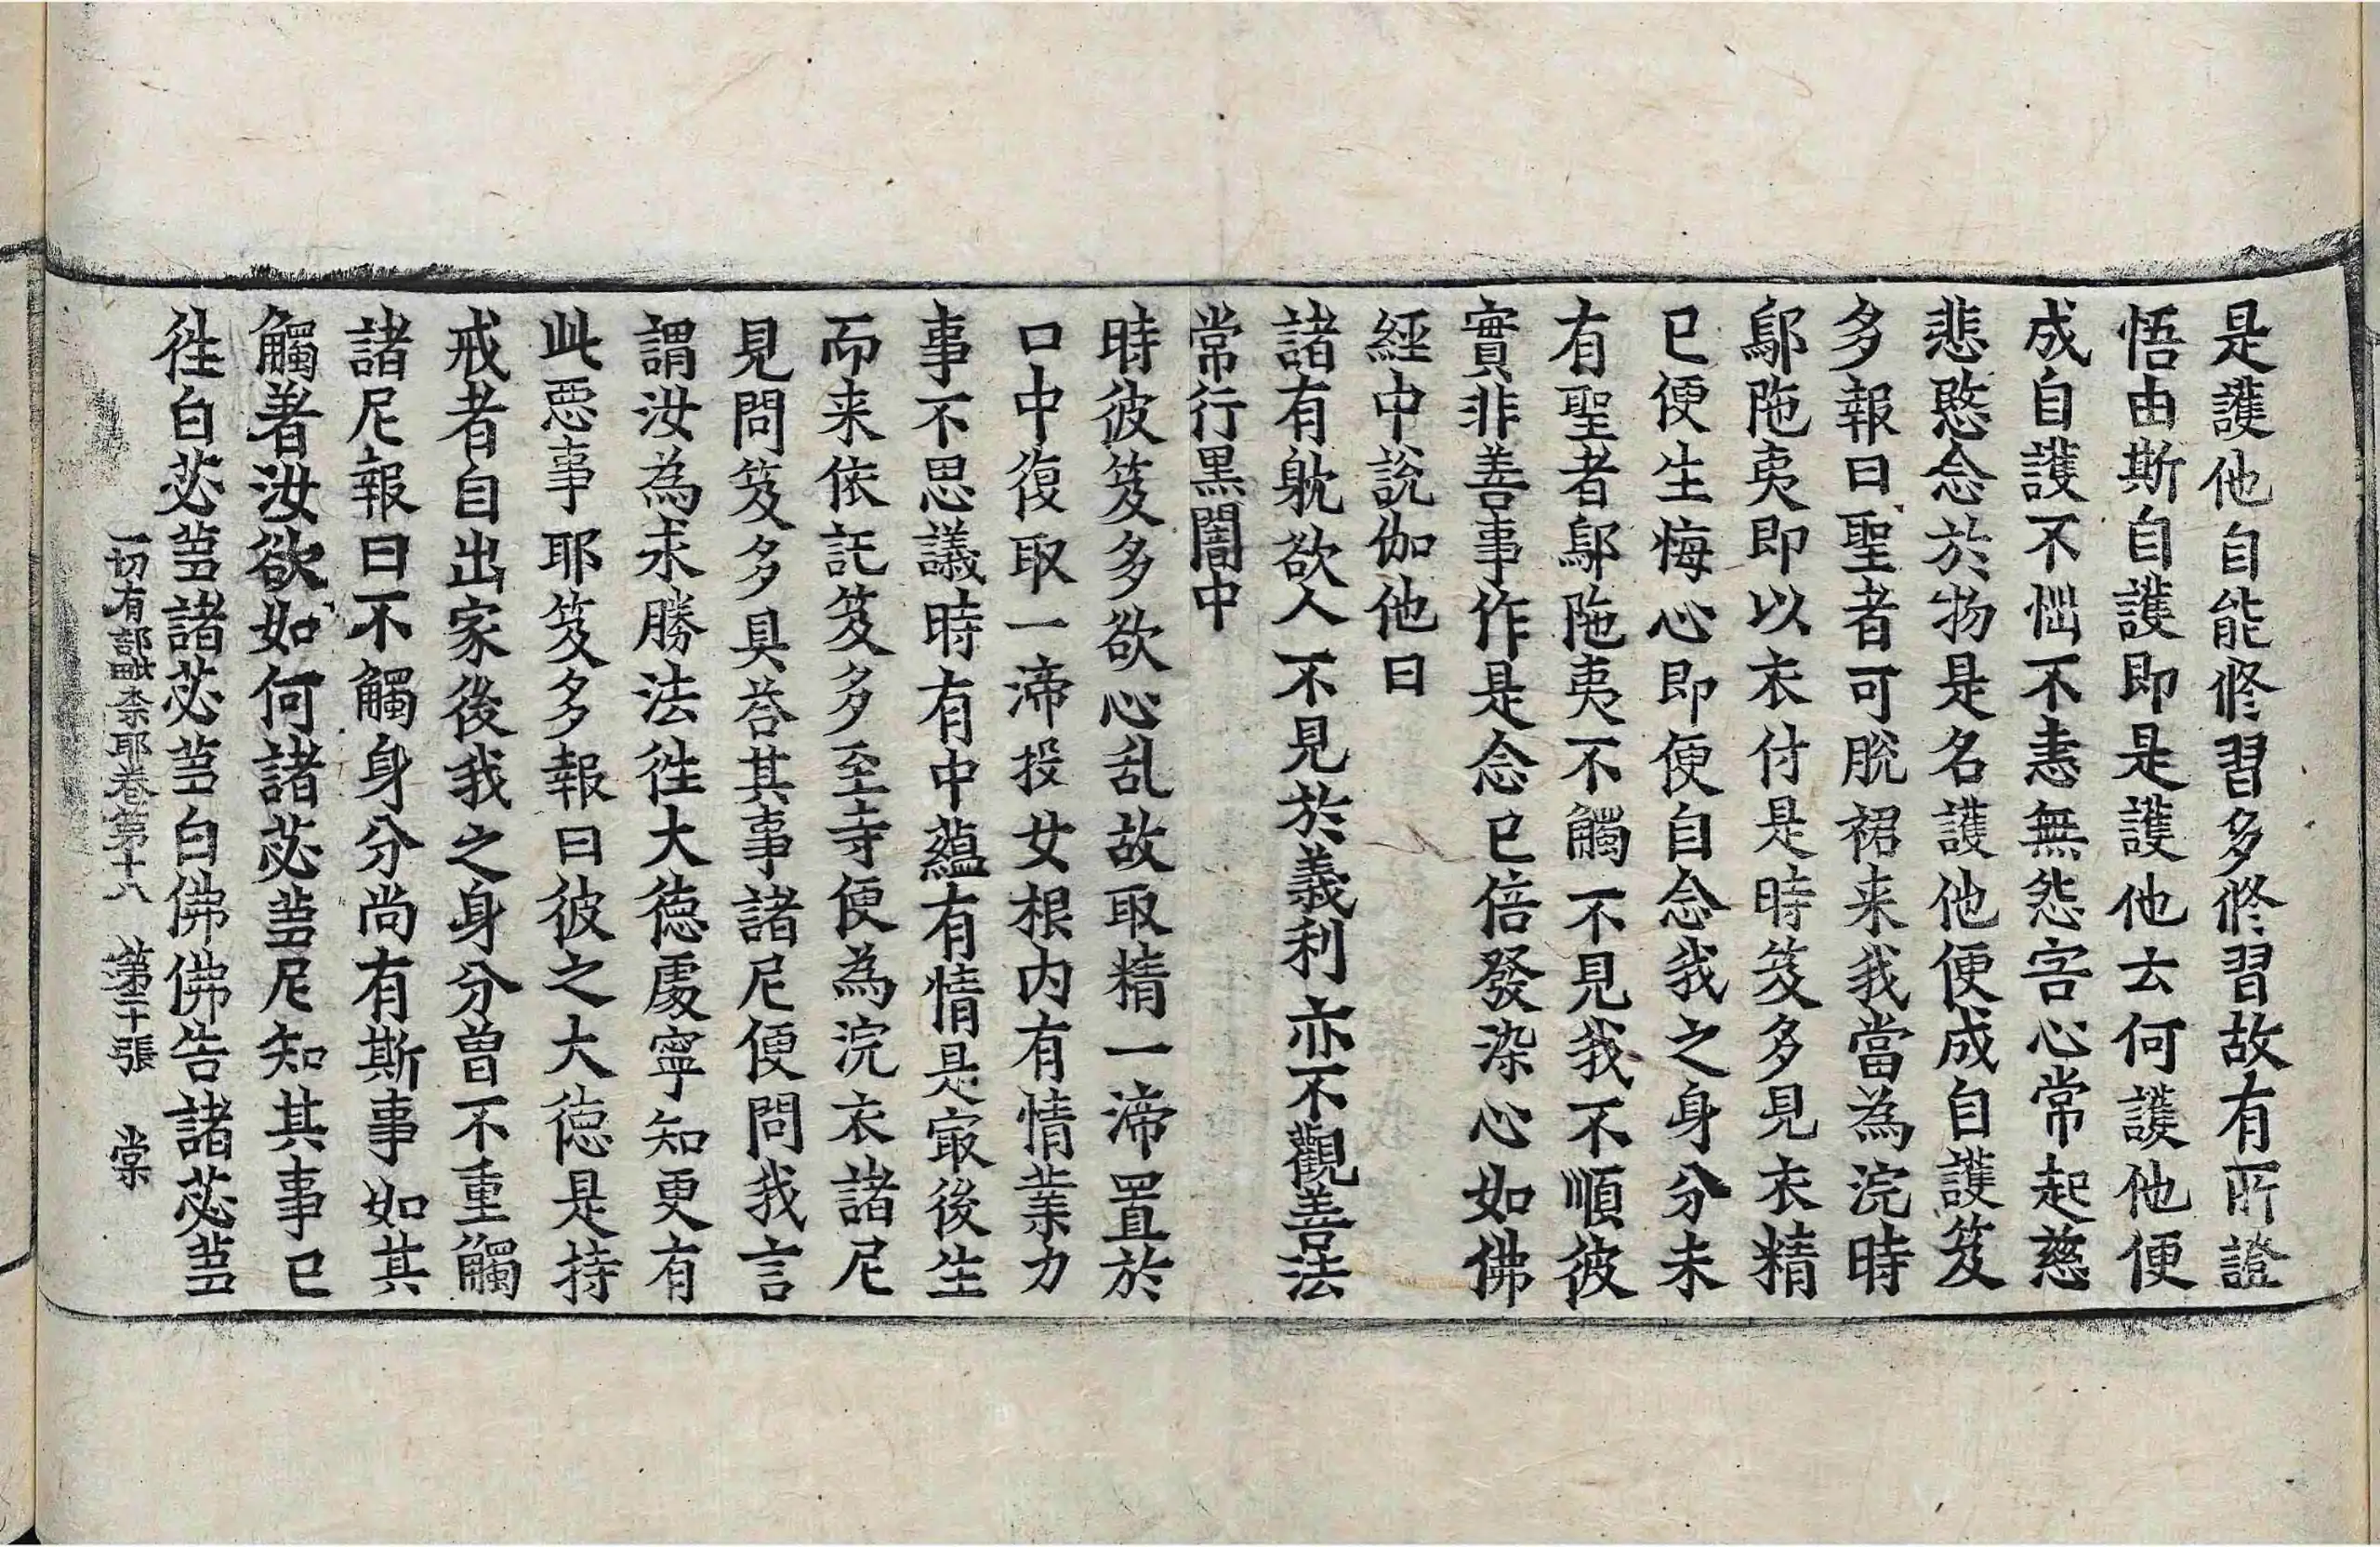 是護他自能修習多修習故有所證
悟由斯自護即是護他云何護他便
成自護不惱不恚無怨害心常起慈
悲愍念於物是名護他便成自護笈
多報曰聖者可脫裙来我當為浣時
鄔陁夷即以衣付是時笈多見衣精
已便生悔心即便自念我之身分未
有聖者鄔陁夷不觸不見我不順彼
實非善事作是念已倍發染心如佛
經中說伽他曰
諸有躭欲人不見於義利亦不觀善法
常行黒闇中
時彼笈多欲心乱故取精一渧置於
口中復取一渧投女根內有情業力
事不思議時有中蘊有情是㝡後生
而来依託笈多至寺便為浣衣諸尼
見問笈多具荅其事諸尼便問我言
謂汝為求勝法徃大德處寧知更有
此惡事耶笈多報曰彼之大德是持
戒者自出家後我之身分曾不重觸
諸尼報曰不觸身分尚有斯事如其
觸著汝欲如何諸苾蒭尼知其事已
徃白苾蒭諸苾蒭白佛佛告諸苾蒭
一切有部毗奈耶卷第十八　第二十張　棠